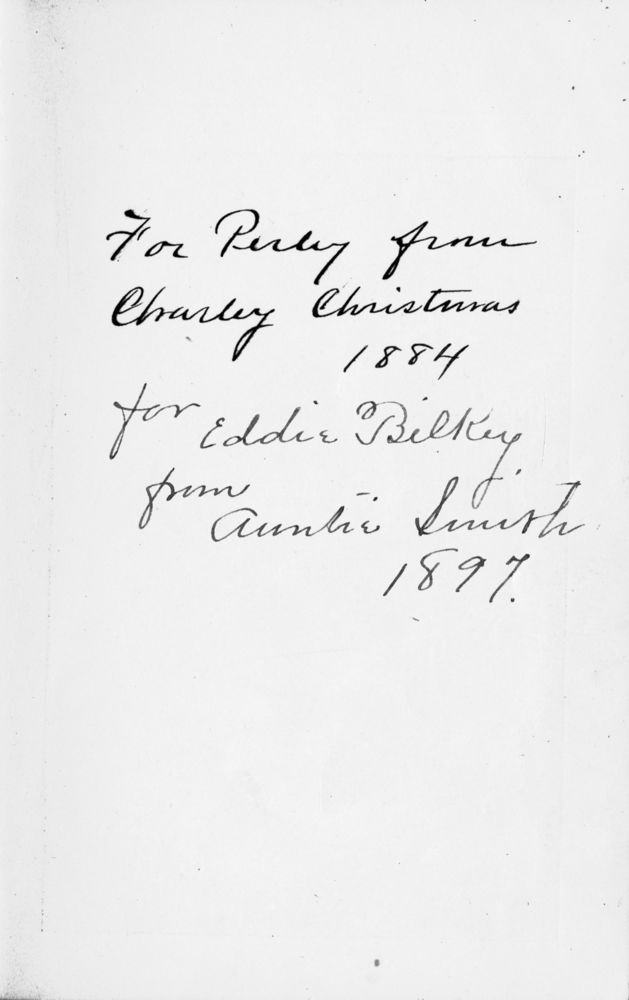 For Perley from
Charley Christmas
1884
for Eddie Bilkey
from
Auntie Smith
1897.